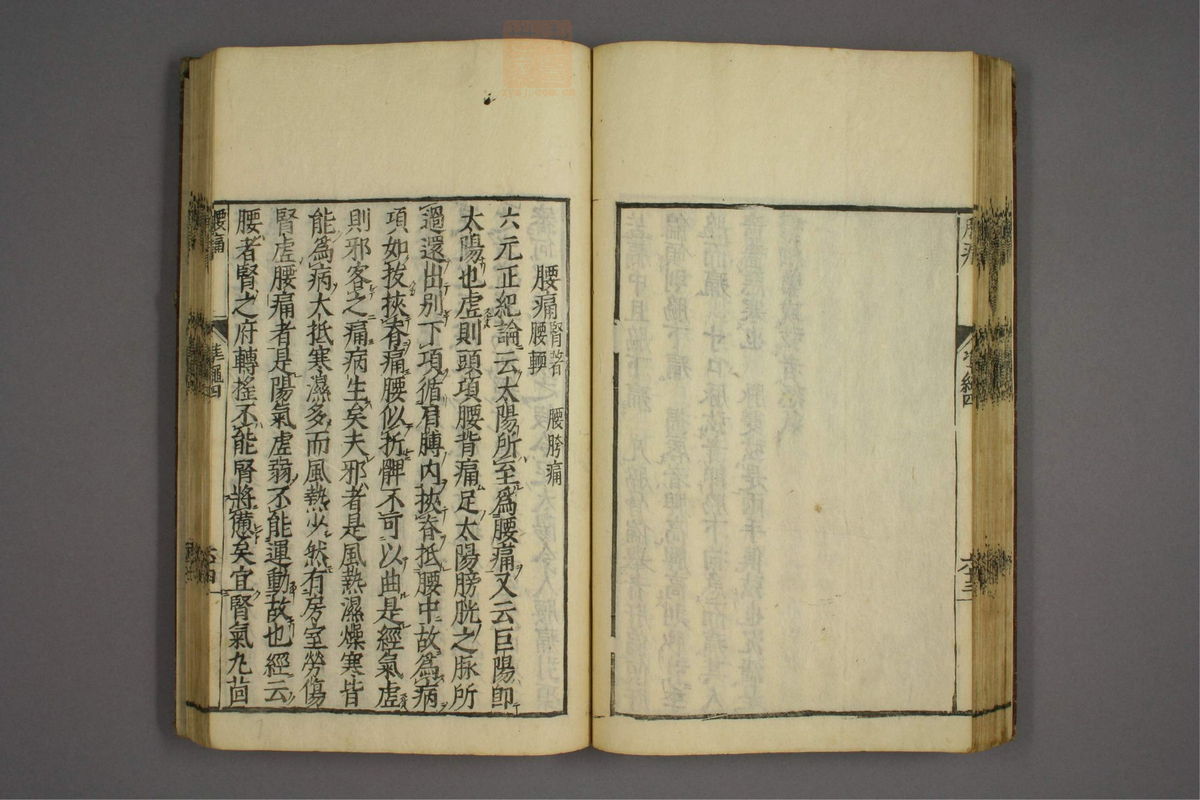 腰痛 腎著 腰胯痛 腰軃
六元正紀論云太陽所至爲腰痛又云巨陽即
太陽也虛則頭項腰背痛足太陽膀胱之脉所
過還出别下項循肩膊内挾脊抵腰中故爲病
項如拔挾脊痛腰似折髀不可以曲是經氣虛
則邪客之痛病生矣夫邪者是風熱濕燥寒皆
能爲病大抵寒濕多而風熱少然有房室勞傷
腎虛腰痛者是陽氣虛弱不能運動故也經云
腰者腎之府轉搖不能腎將憊矣宜腎氣丸茴
腰痛
六四